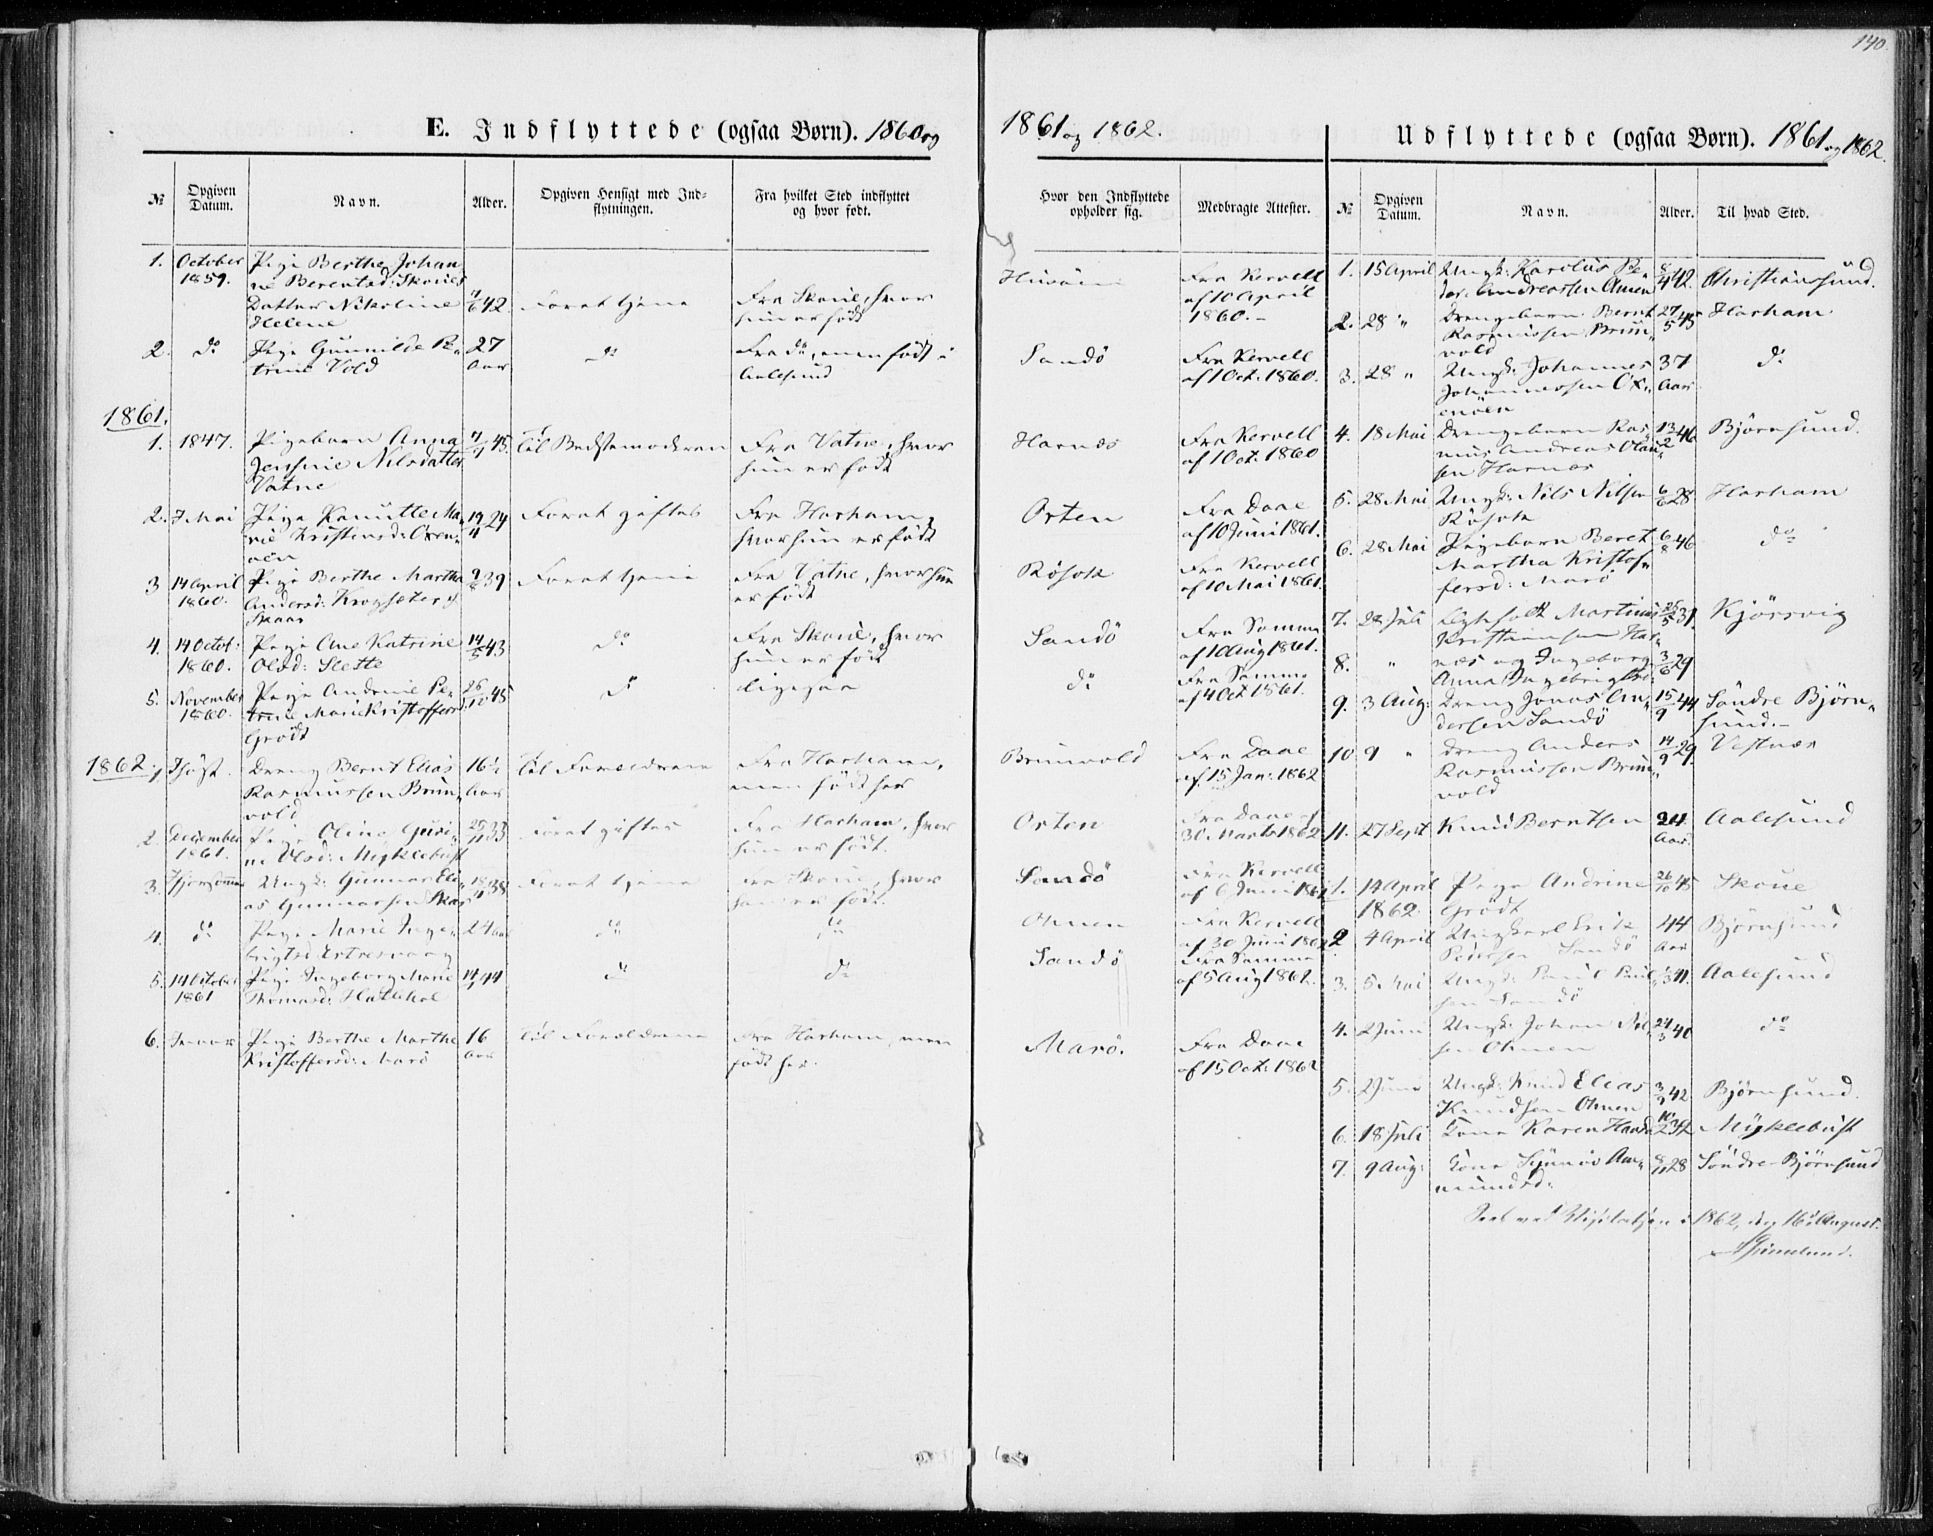 140.
E. Indflyttede (ogsaa Børn). 1860 og
1861 og 1862.
Udflyttede (ogsaa Børn). 1861 og 1862.
№
Opgiven
Datum.
Navn.
Alder.
Opgiven Hensigt med Ind-
flytningen.
Fra hvilket Sted indflyttet
og hvor født.
Hvor den Indflyttede
opholder sig.
Medbragte Attester.
№
Opgiven
Datum.
Navn.
Alder.
Til hvad Sted.
1.
October
1859.
Pige Berthe Johan
ne Berentsd: Skoues
Datter Nikoline
Helene
42.
Foret tjene
Fra Skoue, hvor
hun er født
Fra Kervell
af 10 April
1860.-
2.
do
Pige Gunnilde Pe-
trine Vold
27
Aar
do
Fra do, men født i
Aalesund
Sandö
Fra Kervell
af 1 Oct. 1860.
1861.
1.
1847.
Pigebarn Anna
Jensine Nilsdatter
Vatne
45.
til Bedstemoderen
Fra Vatne, hvor
hun er født
Harnæs
Fra Kervell
af 1 Oct. 1860
2.
7 Mai
Pige Kanutte Ma-
rie Kristensd: Oxen-
öen
19/4 24
Foret giftes
Fra Harham,
hvor hun er født
Orten
Fra Daae
af 10 Juni 1861.
3
14 April
1860.
Pige Berthe Martha
Andersd: Krogsæter
Skaar
9/8 39
Foret tjene
Fra Vatne, hvor hun
er født
Rösok
Fra Kervell
af 10 Mai 1861.
4.
14 Octob:
1860.
Pige Ane Katrine
Olsd: Slette
14/5 43
do
Fra Skoue, hvor
hun er født
Sandö
Fra Samme
af 10 Aug 1861.
5.
November
1860.
Pige Andrine Pe-
trine Marie Kristoffersd:
Grødt
26/10 45
do
ligesaa
do
Fra Samme
af 4 Oct 1861.
1862.
1
Høst.
Dreng Bernt Elias
Rasmussen Brun-
vold
16½
Aar
til Forældrene
Fra Harham,
men født her
Brunvold
Fra Daae
af 15 Jan: 1862
2.
December
1861.
Pige Oline Guri-
ne Olsd: Myklebust
25/11 33
Foret giftes
Fra Harham, hvor
hun er født.
Orten
Fra Daae af
30 Marts 1862
3.
Ungk: Gunnar Eli-
as Gunnarsen Skar
18/11 38
Foret tjene
Fra Skoue, hvor
han er født.
Sandö
Fra Kervell
af 6 Juni 1862
4.
do
Pige Marie Inge-
brigtsd
24 Aar
do
do
Ohnen
Fra Kervell
af 30 Juni 1862
5.
14 October
1861
Pige Ingeborg Marie
Thomasd: Hattehol
44
do
do
Sandö
Fra Samme
af 5 Aug 1862.
6.
Pige Berthe Marthe
Kristoffersd: Marö
16
Aar
til Forældrene
Fra Harham, men
født her.
Marö.
Fra Daae
af 15 Oct: 1862
1.
15 April
Ungk: Karolus Pe-
der Andreassen
8/4 42.
Christiansund.
2.
28 "
Drengebarn Bernt
Rasmussen Brun-
vold
27/5 45
Harham
3.
28 "
Ungk: Johannes
Johannessen Ox-
enöen
37
Aar
do
4.
18 Mai
Drengebarn Ras-
mus Andreas Olau-
sen Harnæs
13/2 46
Björnsund.
5.
28 Mai
Ungk: Nils Nilsen
Rösok
6/6 28
Harham
6.
28 Mai
Pigebarn Beret
Martha Kristof-
fersd: Marö
6/8 46
do
7.
22 Juli
Ægtefolk Martinus
Kristiansen Har-
25/5 31.
Kjörsvig
8.
"
næs og Ingeborg
Anna Ingebrigtsd:
3/6 29
9.
3 Aug:
Dreng Jonas An-
dersen Sandö
15/9 44
Söndre Björn-
sund.-
10
9 "
Dreng Anders
Rasmussen Brun-
vold
14/9 29.
Vestnæs
11.
27 Sept
Knud Berntsen
24
Aar
Aalesund
1.
14 April
1862.
Pige Andrine
Grødt
26/10 45
Skoue
2
4 April
Ungkarl Erik
Pedersen Sandö
44
Aar
Björnsund
3.
5 Mai
Ungk: Poul Poul-
sen Sandö
41.
Aalesund
4.
2 Juni
Ungk: Johan Nil-
sen Ohnen
24/3 40
do
5.
2 Juni
Ungk: Knud Elias
Knudsen Ohnen
42
Björnsund.
6.
18 Juli
Kone Karen Hansd
32
Myklebust
7.
9 Aug:
Kone Synnöv Am-
undsd:
8/11 28
Söndre-Björnsund
Seet ved Visitatsen i 1862, den 16d August.